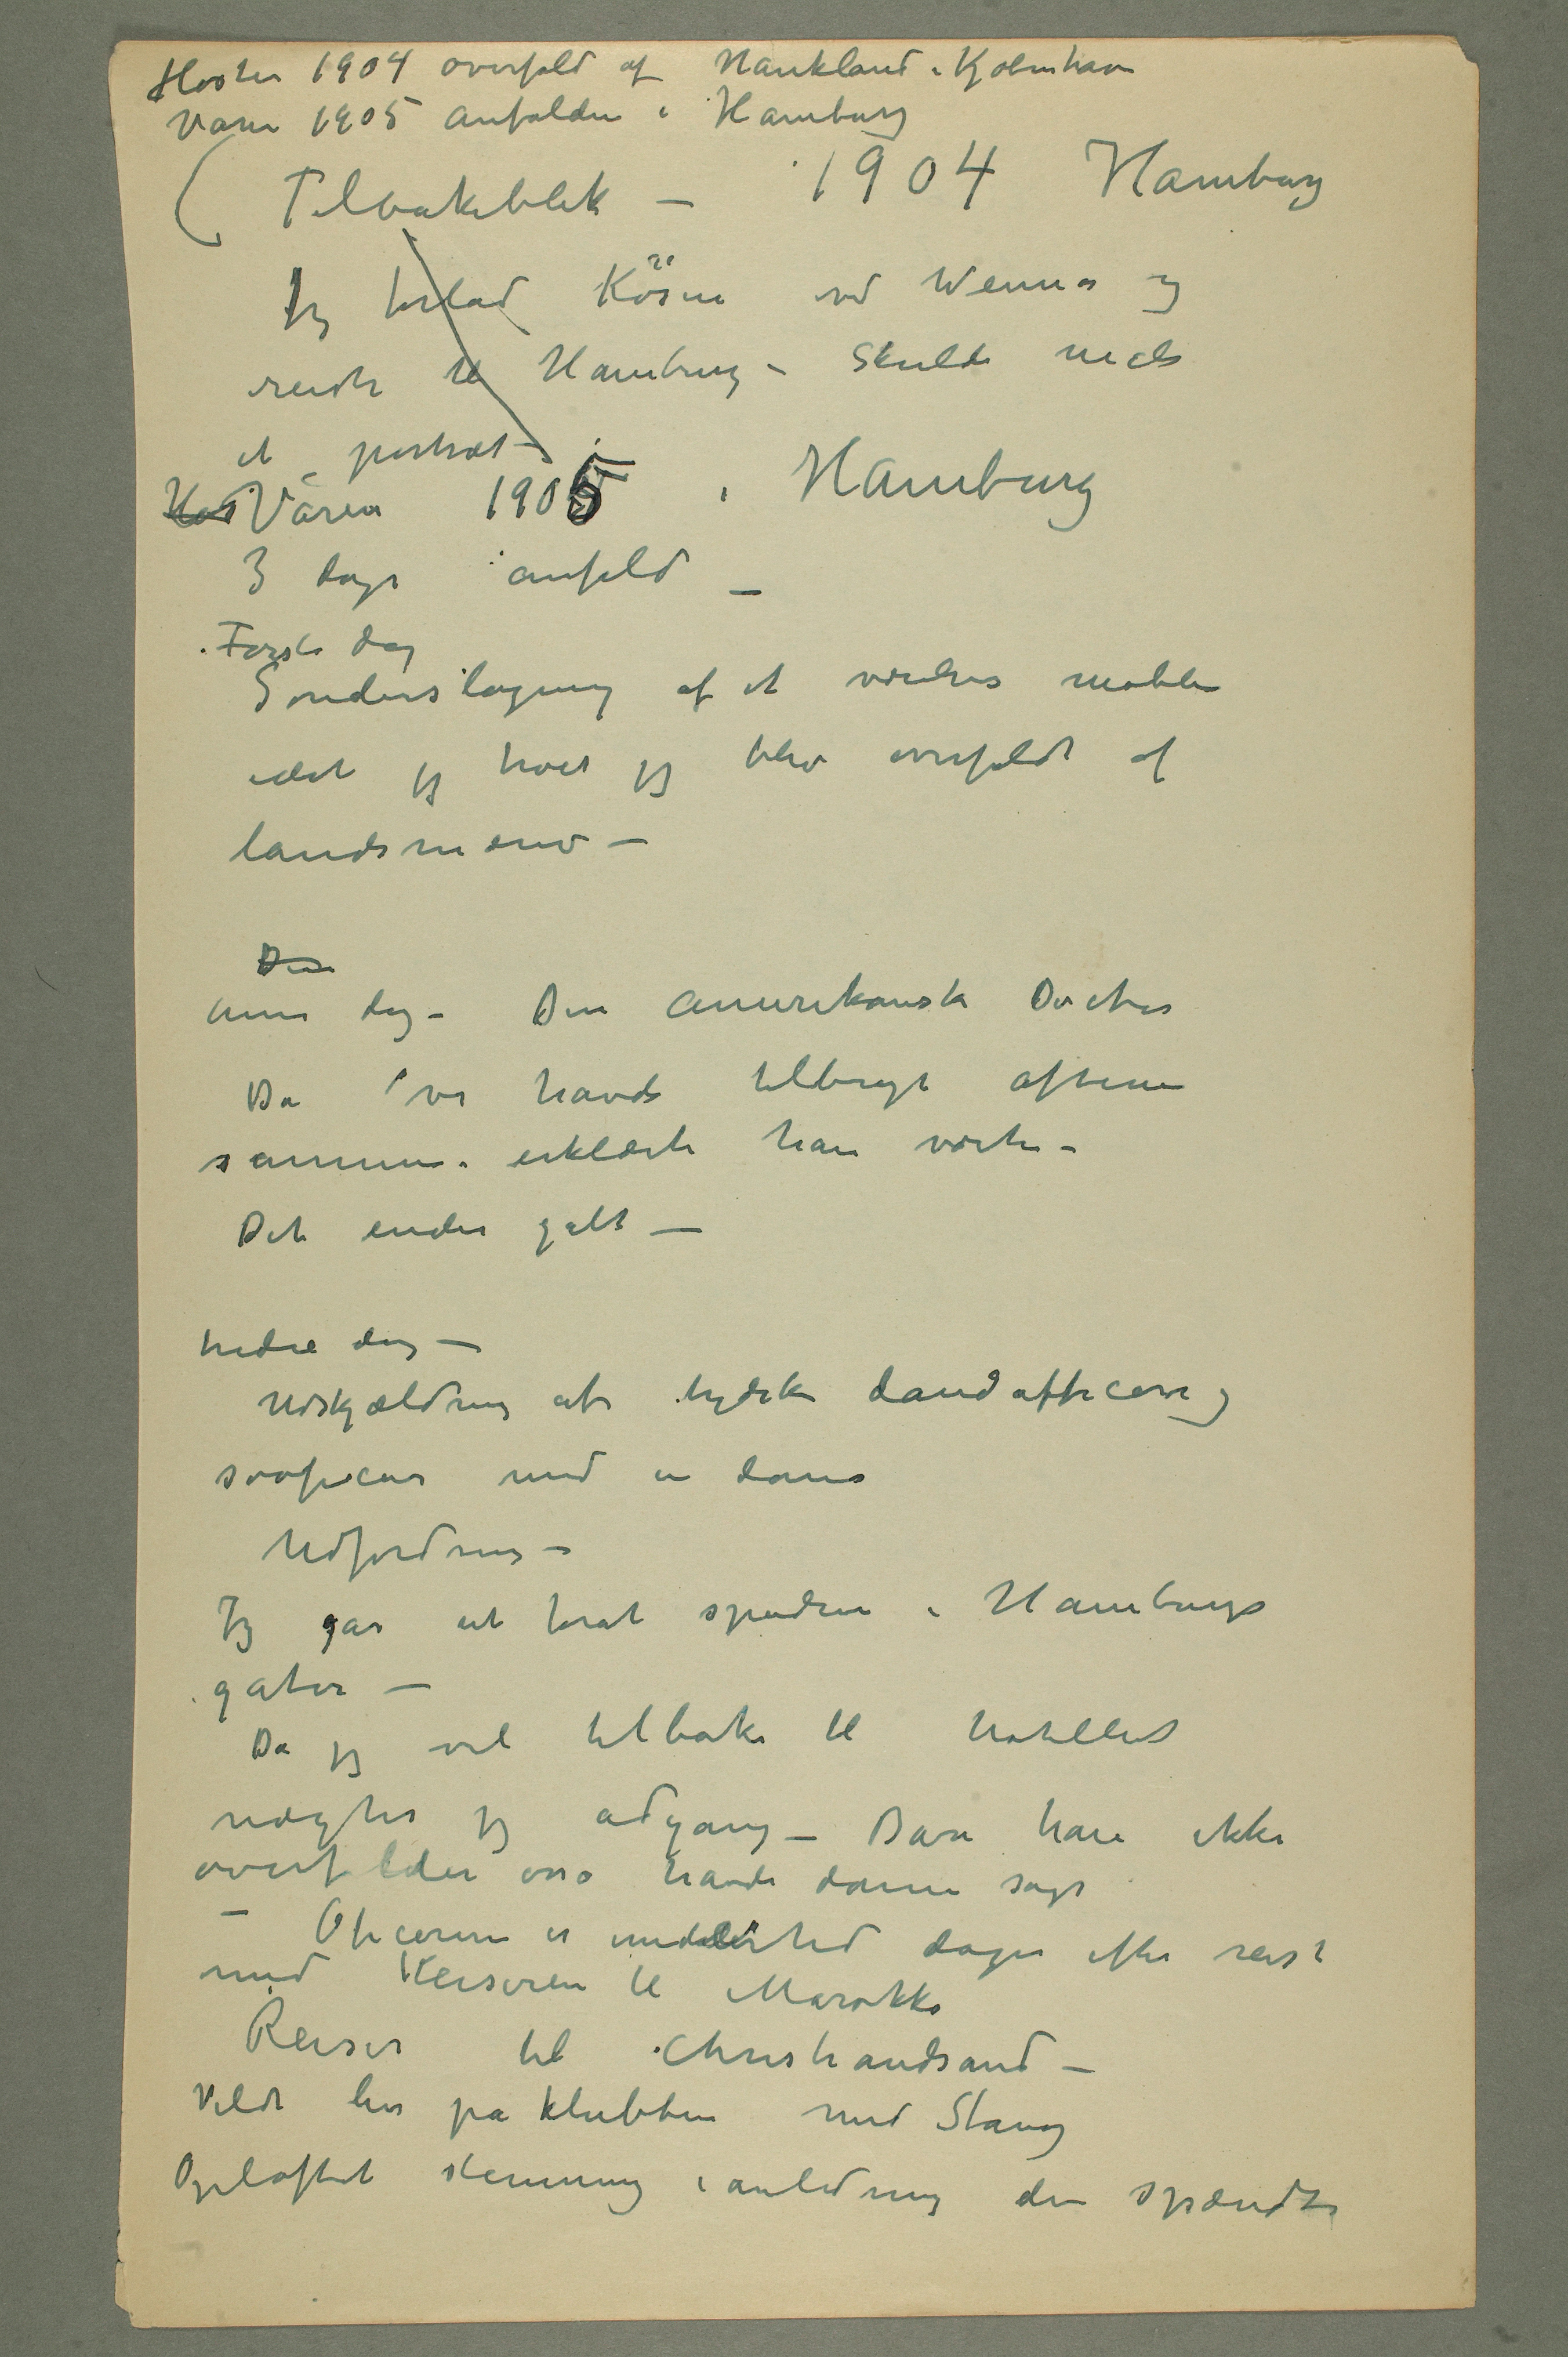 Høsten 1904 overfald af Haukland i Kjøbenhavn
Våren 1905 anfaldene i Hamburg
( Tilbakeblik – 1904 Hamburg
Jeg forlod Kösen ved Weimar og
reiste til Hamburg – Skulde male
et portræt –
Høs Våren 1905 i Hamburg
3 dages anfald –
Første dag
Sønderslagning af et værelses møbler
idet jeg troet jeg blev overfaldt af
landsmænd –
Den
Annen dag – Den amerikanske Doctor
Da vi havde tilbragt aftenen
sammen erklærte han værten –
Det ender galt –
tredie dag –
Udskjældning af tydske landofficerer og
søoficerer med en dame
Udfordring –
Jeg går ut forat spadsere i Hamburgs
gater –
Da jeg vil tilbake til hotellet
nægtes jeg adgang – Bare han ikke
overfalder os havde damen sagt
– Oficererne er imidlertid dagen efter reist
med Keiseren til Marokko
Reiser til Christiandsand –
Vildt liv på klubben med Stang
Opløftet stemning i anledning den spændte